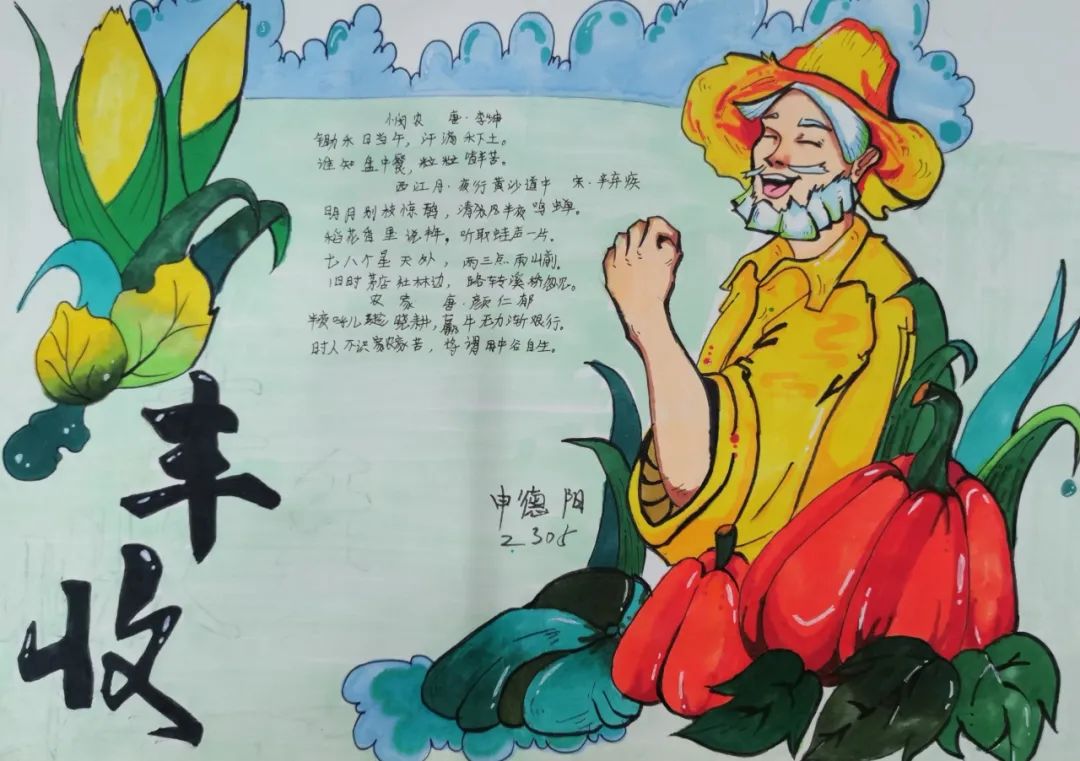 悯农 唐·李绅
锄禾日当午，汗滴禾下土。
谁知盘中餐，粒粒皆辛苦。
西江月·夜行黄沙道中 宋·辛弃疾
明月别枝惊鹊，清风半夜鸣蝉。
稻花香里说丰年，听取蛙声一片。
七八个星天外，两三点雨山前。
旧时茅店社林边，路转溪桥忽见。
农家 唐·颜仁郁
半夜呼儿趁晓耕，羸牛无力渐艰行。
时人不识农家苦，将谓田中谷自生。
丰收
申德阳
2305